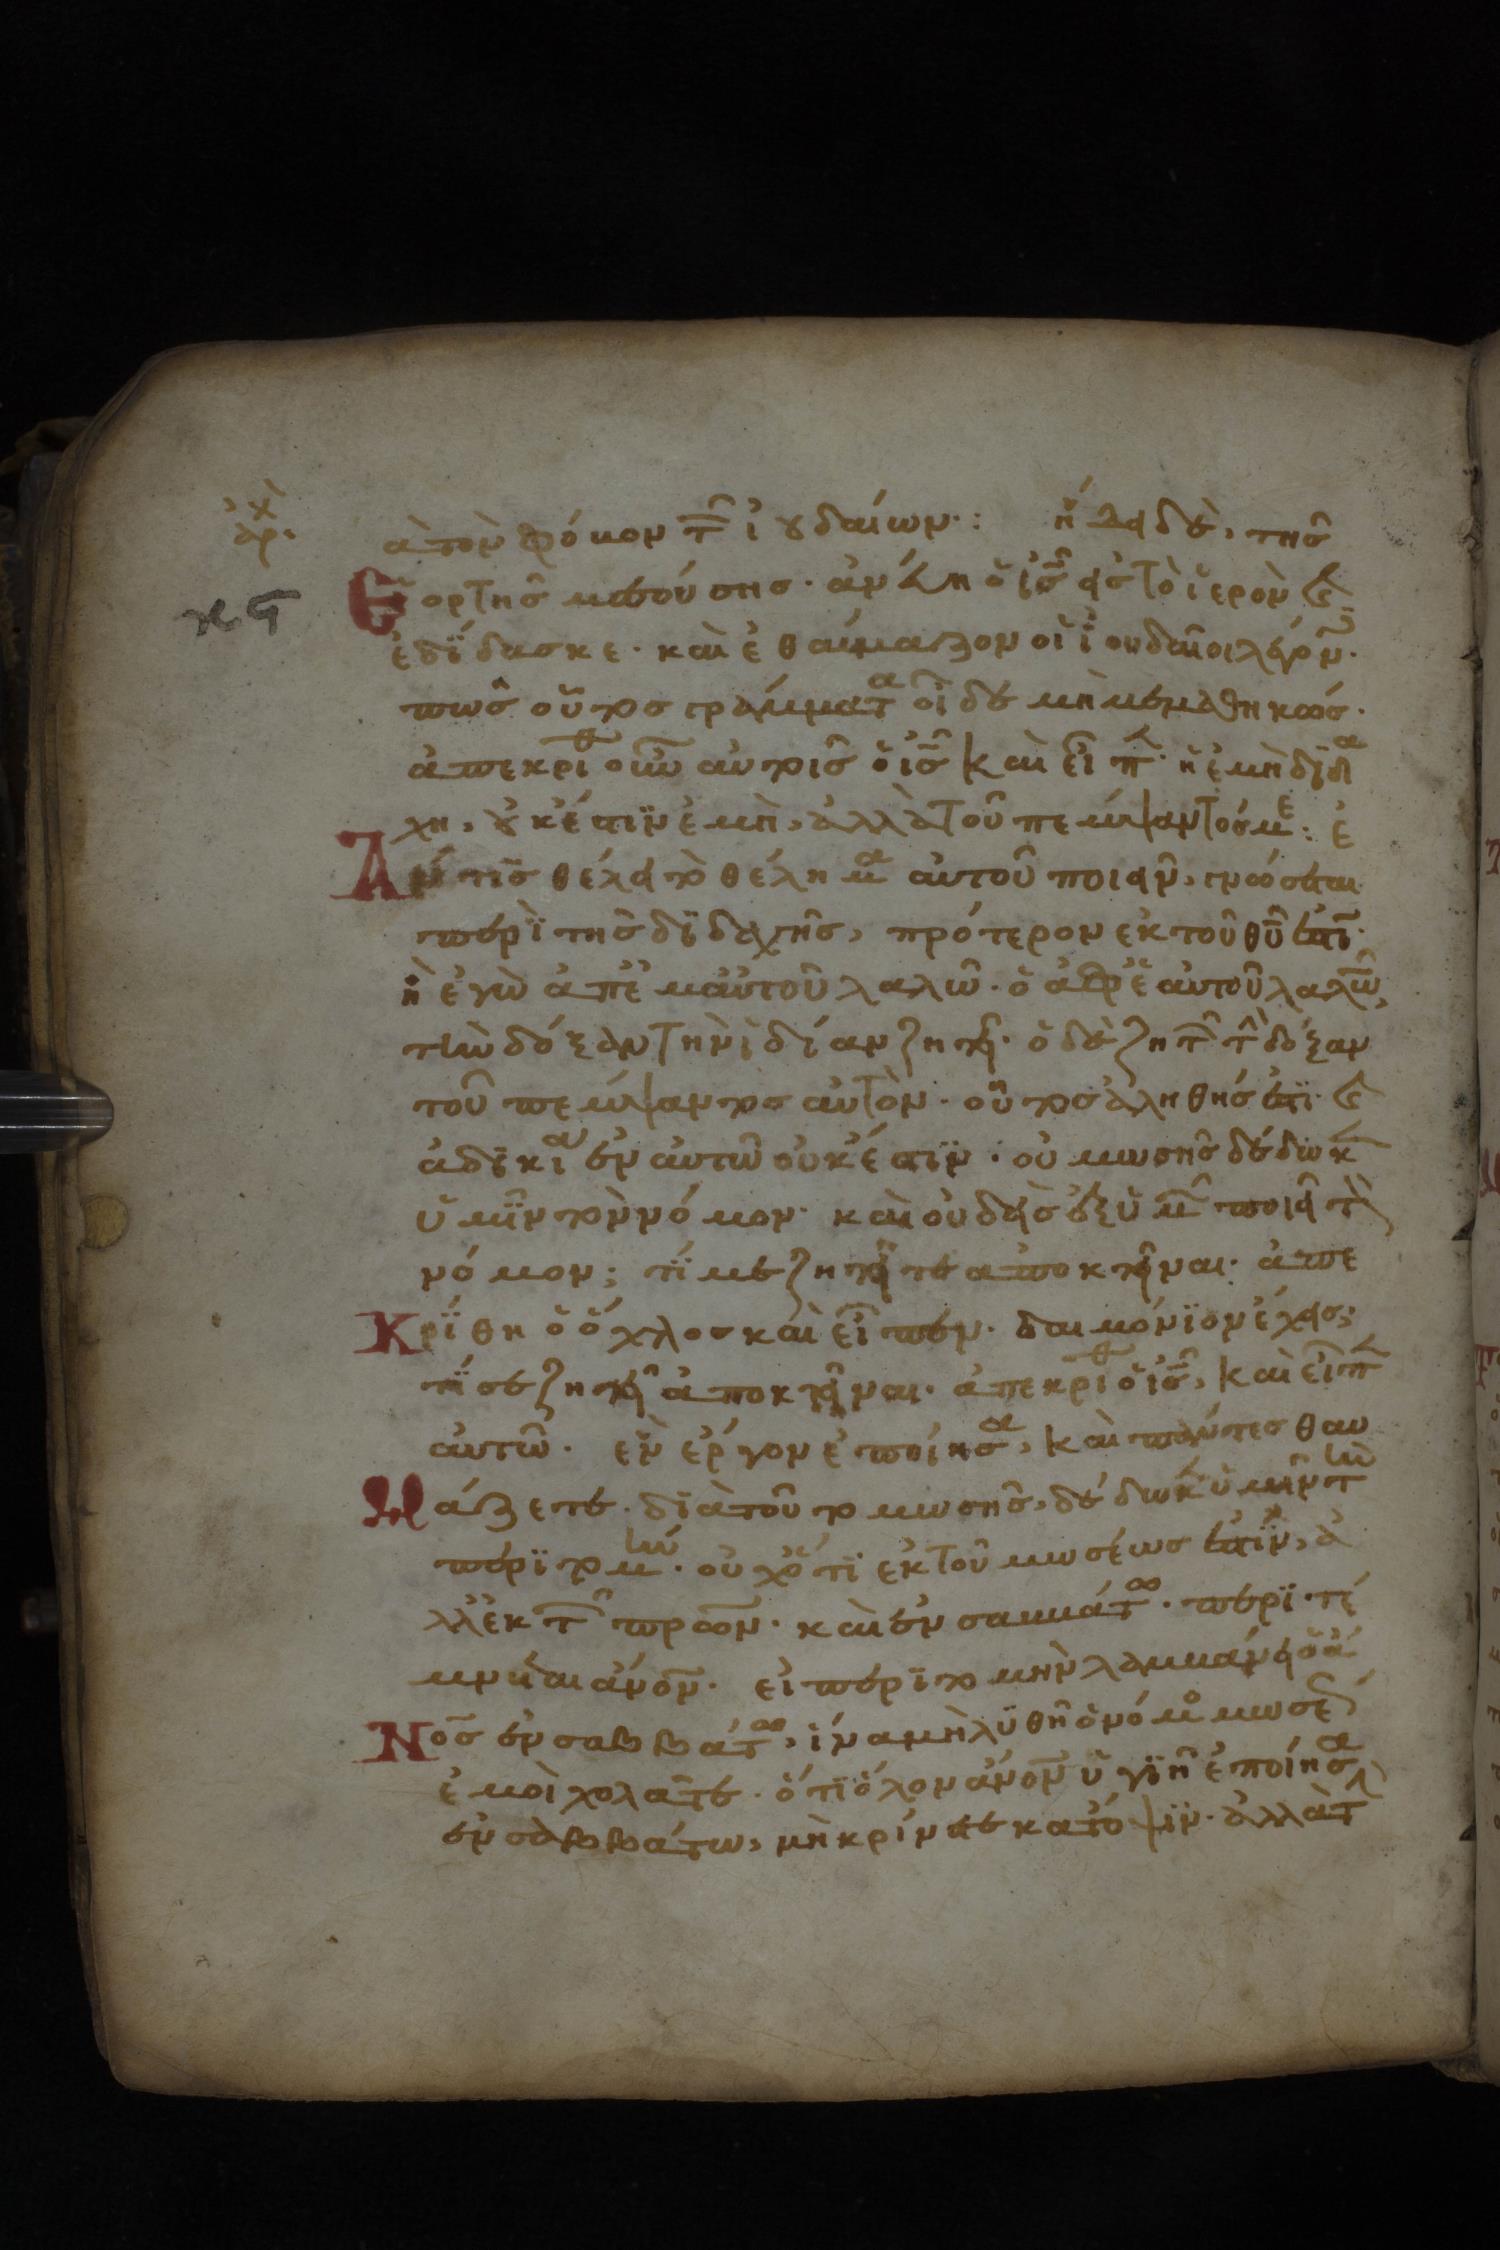 ἀρχ
ϗ ς
ὰ τὸν φόβον τ ἰουδαίων·: ἤδη δὲ, τῆς
Ἑορτῆς μεσούσης· ἀνέβη ὁ ἰς εἰς τὸ ἱερὸν ϗ
ἐδίδασκε· καὶ ἐθαύμαζον οἱ ἰουδαῖοι λέγοντ·
πῶς οὗτος γράμματα οἶδε μὴ μεμαθηκώς·
ἀπεκρίθ οὖν αὐτοῖς ὁ ἰς καὶ εἶπ· ἡ ἐμὴ διδα
χὴ, οὐκ ἔστιν ἐμὴ, ἀλλὰ τοῦ πέμψαντός με: ἐ
Αν τις θέλει τὸ θέλημα αὐτοῦ ποιεῖν, γνώσεται
περὶ τῆς διδαχῆς, πρότερον ἐκ τοῦ θυ ἐστι·
ἢ ἐγὼ ἀπ' ἐμαυτοῦ λαλῶ· ὁ ἀφ' ἑαυτοῦ λαλῶν,
τὴν δόξαν τὴν ἰδίαν ζητεῖ· ὁ δὲ ζητῶν τὴν δόξαν
τοῦ πέμψαντος αὐτὸν· οὗτος ἀληθής ἐστι· ϗ
ἀδικία ἐν αὐτῶ οὐκ ἔστιν· οὐ μωσῆς δέδωκ
ὑμῖν τὸν νόμον· καὶ οὐδεὶς ἐξ ὑμῶν ποιεῖ τὸν
νόμον; τί με ζητεῖτε ἀποκτεῖναι· ἀπε
Κρίθη ὁ ὄχλος καὶ εἶπεν· δαιμόνιον ἔχεις;
τίς σε ζητεῖ ἀποκτεῖναι· ἀπεκρίθ ὁ ἰς, καὶ εἶπ
αὐτῶ· ἓν ἔργον ἐποίησα, καὶ πάντες θαυ
Μάζετε· διὰ τοῦτο μωσῆς, δέδωκ ὑμῖν τὴν
περιτομήν· οὐχ ὅτι ἐκ τοῦ μωσέως ἐστὶν, ἀ
λλ' ἐκ τῶν πρων· καὶ ἐν σαββάτω· περιτέ
μνεται ἄνον· εἰ περιτομὴν λαμβάνει ὁ ἄ
Νος ἐν σαββάτω, ἵνα μὴ λυθῆ ὁ νόμο μωσέ
ἐμοὶ χολᾶτε· ὅτι ὅλον ἄνον ὑγιῆ ἐποίησα
ἐν σαββάτω, μὴ κρίνετε κατ' ὄψιν· ἀλλὰ τὴν